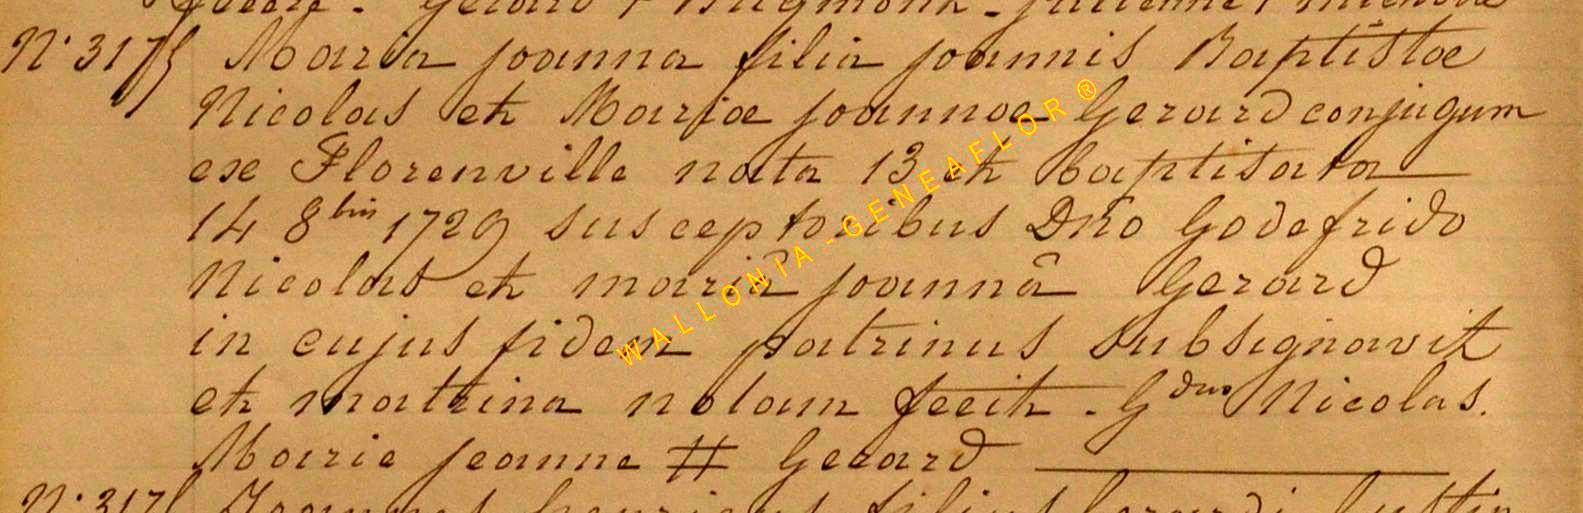 Gerard
N. 317 Maria joanna filia joannis Baptistae
Nicolas et Mariae joannae Gerard conjugum
ex Florenville nata 13 et baptisata
14 8bris 1729 susceptoribus Dno Godefrido
Nicolas et mariâ joannâ Gerard
in cujus fidem patrinus subsignavit
et mattrina notam fecit - Gdus Nicolas.
Marie jeanne # Gerard
N. 317 Joannes henricus filius
WALLONIA-GENEAFLOR®